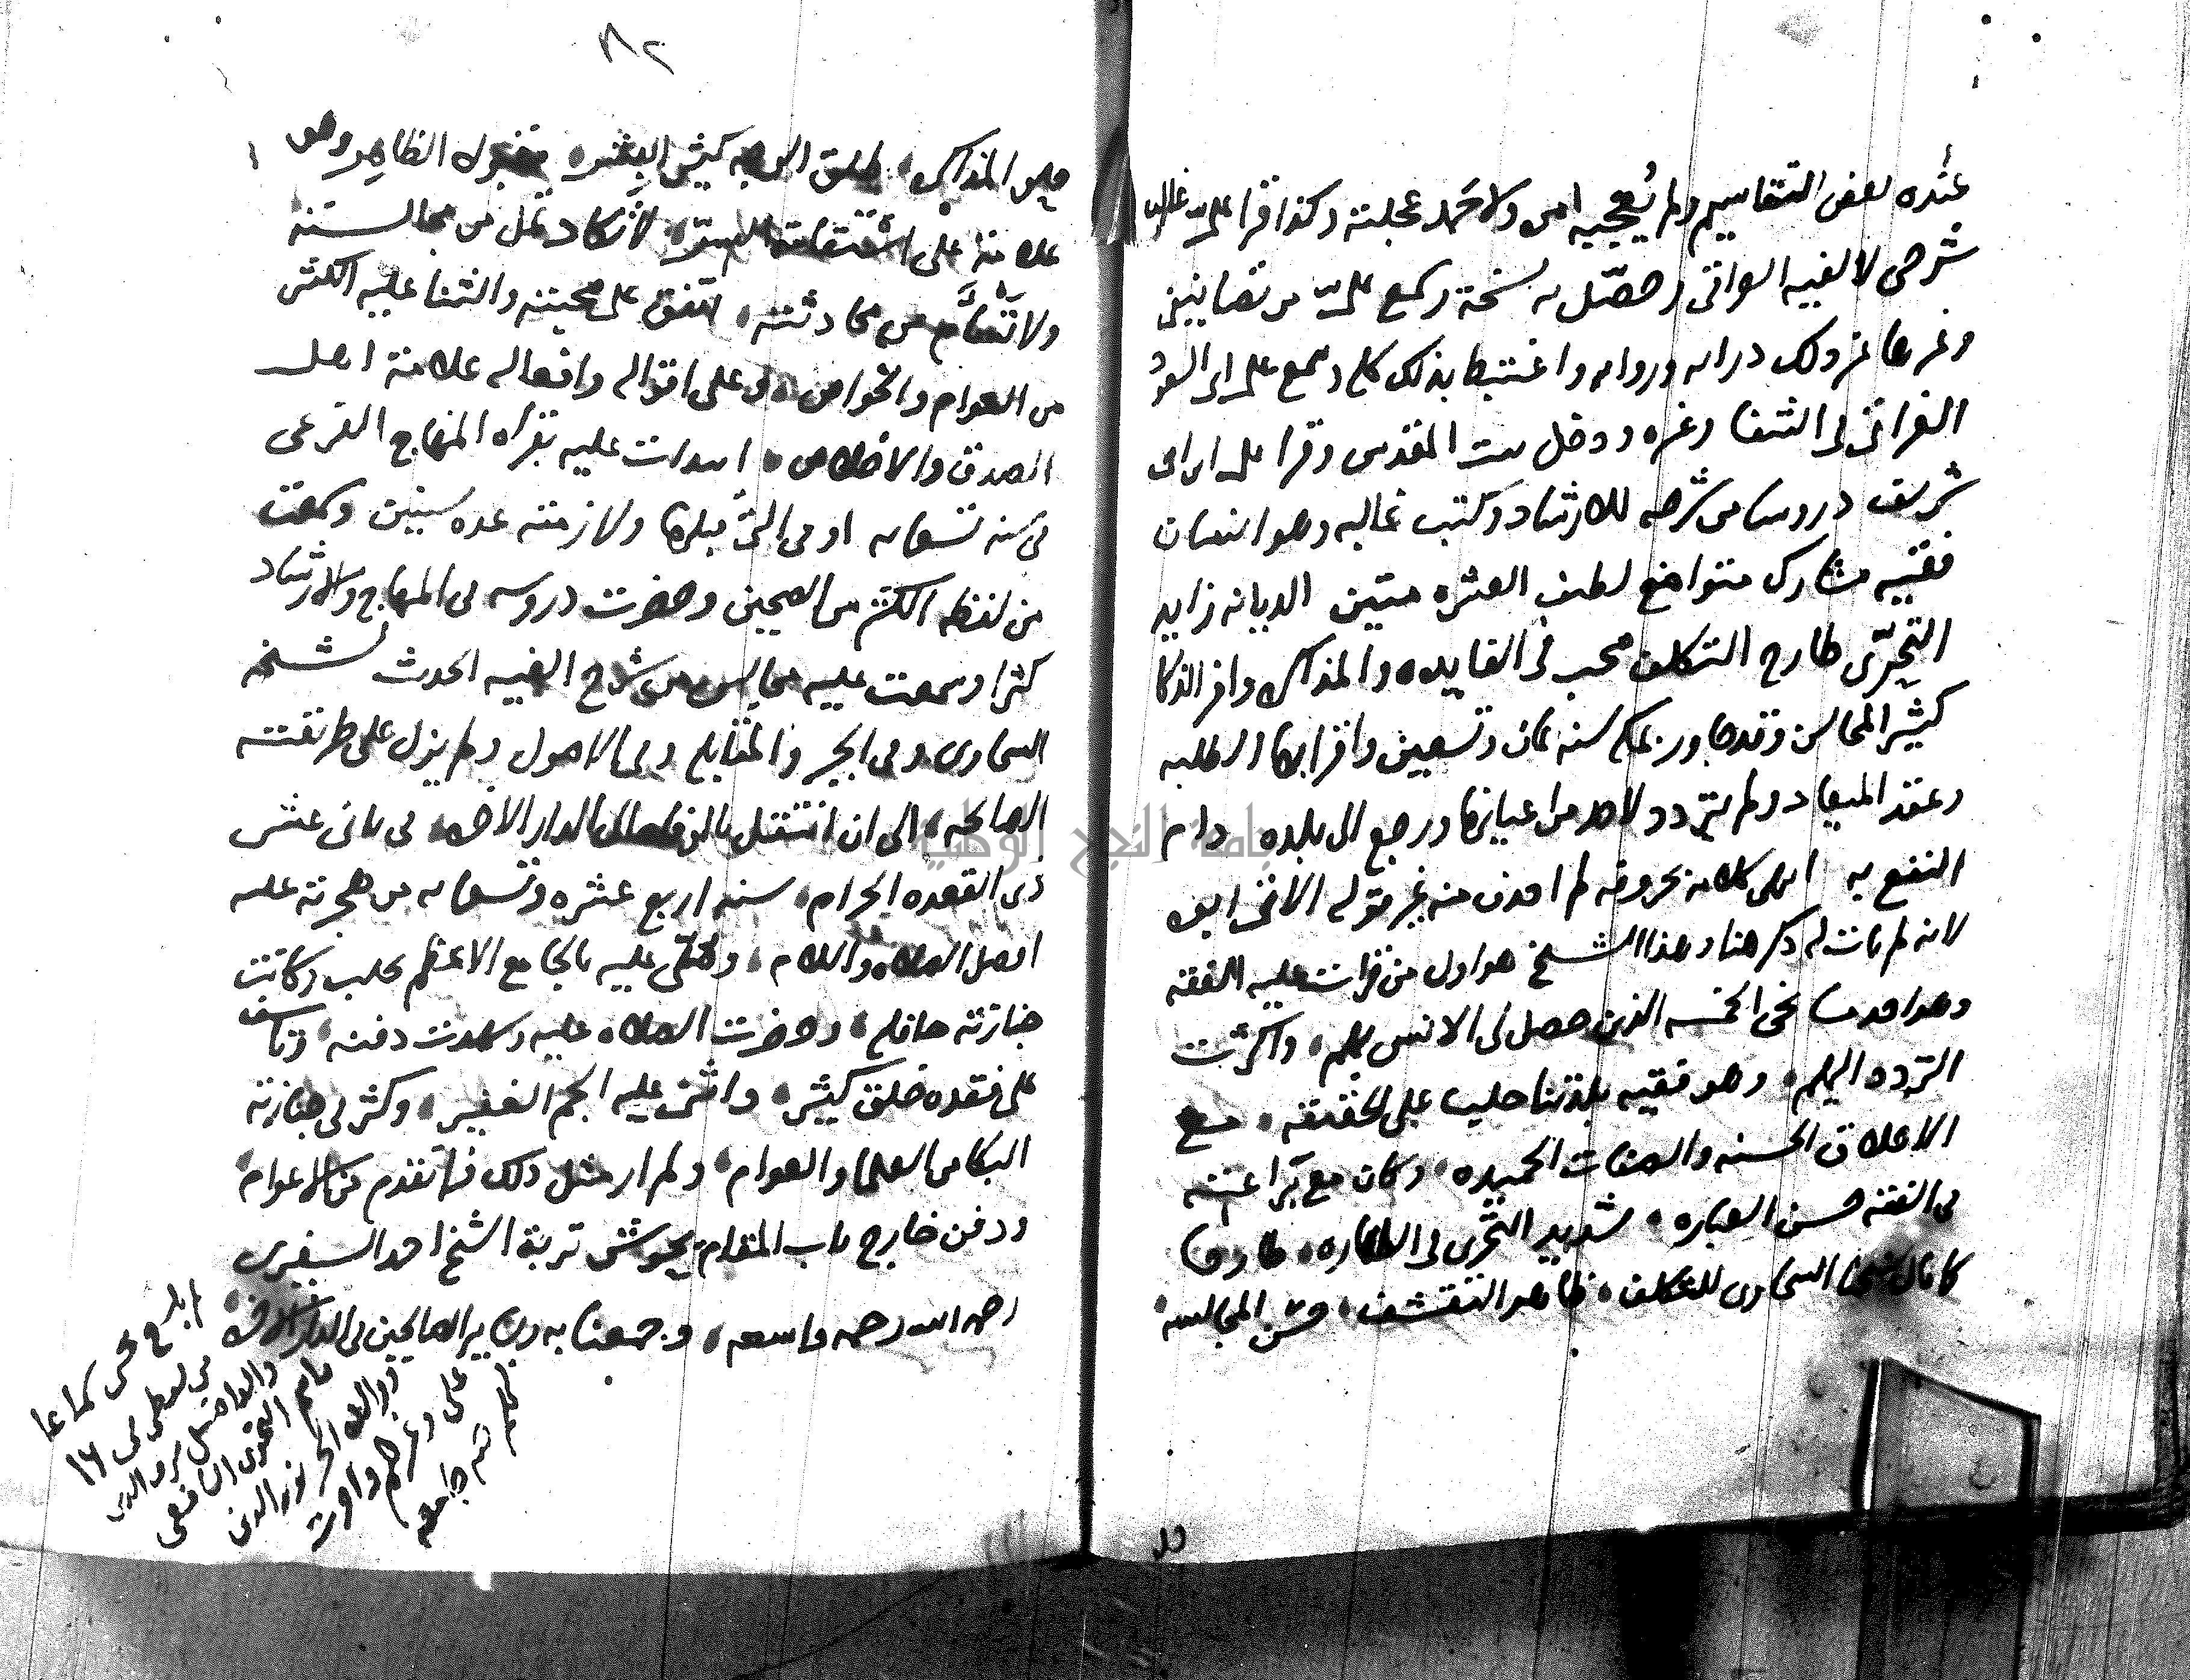 عنده بعض التقاسيم ولم يعجبه امره ولا حمد عجلته وكذا قرا علي غالب
شرحي لالفيه العراقي وحصل به نسخة وسمع علي من تصانيفي
وغيرها غير ذلك درايه وروايه واغتبط بذلك كله وسمع على ابي السعود
الغراقي في الشفا وغيره ودخل بيت المقدس وقرا على ابن ابي
شريف دروسا من شرحه للارشاد وكتب غالبه وهو انسان
فقيه مشارك متواضع لطيف العشره متين الديانه زايد
التحري طارح التكلف محب في الفايده والمذاكره وافر الذكا
كثير المحاسن وقد جاور بمكه سنه ثمان وتسعين واقرا بها الطلبه
وعقد الميعاد ولم يتردد لاحد من اعيانها ورجع الى بلده دام
النفع به انتهى كلامه بحروفه لم احذف منه غير قوله الاتي ابوه
لانه لم يات له ذكر هنا وهذا الشيخ هو اول من قرات عليه الفقه
وهو احد مشايخي الخمسه الذين حصل لي الانس بهم، واكثرت
التردد اليهم، وهو فقيه بلدتنا حلب على الحقيقه، مع
الاخلاق الحسنه والصفات الحميده، وكان مع براعته
في الفقه حسن العباره، شديد التحري في الطهاره، طارحا
كما قال شيخنا السخاوي للتكلف، ظاهر التقشف، حسن المجالسه،
٨٢
حلو المذاكره، طلق الوجه كثير البشر، مقبول الظاهر وهو
علامة على استقامة السر، لا تكاد تمل من مجالسته
ولا تسأم من محادثته، اتفق على محبته والثنا عليه الكثير
من العوام والخواص، وعلى اقواله وافعاله علامة اهل
الصدق والاخلاص، ابتدات عليه بقراه المنهاج الفرعي
في سنه تسعمايه او في التي قبلها ولازمته عده سنين وسمعت
من لفظه الكثير من الصحيحين وحضرت دروسه في المنهاج والارشاد
كثيرا وسمعت عليه مجالس من شرح الفيه الحديث لشيخه
السخاوي وفي الجبر والمقابله وفي الاصول ولم يزل على طريقته
الصالحه، الى ان انتقل بالوفاه الى الدار الاخره، في ثاني عشر
ذي القعده الحرام، سنه اربع عشره وتسعمايه من هجرته عليه
افضل الصلاه والسلام، وصلي عليه بالجامع الاعظم بحلب وكانت
جنازته حافله، وحضرت الصلاه عليه وشهدت دفنه، وتاسف
على فقده خلق كثير، واثنى عليه الجم الغفير، وكثر في جنازته
البكا من العلما والعوام، ولم ار مثل ذلك فيما تقدم من الاعوام،
ودفن خارج باب المقام بحوش تربة الشيخ احمد السفيري
رحمه الله رحمه واسعه، وجمعنا به وبساير الصالحين في الدار الاخره،